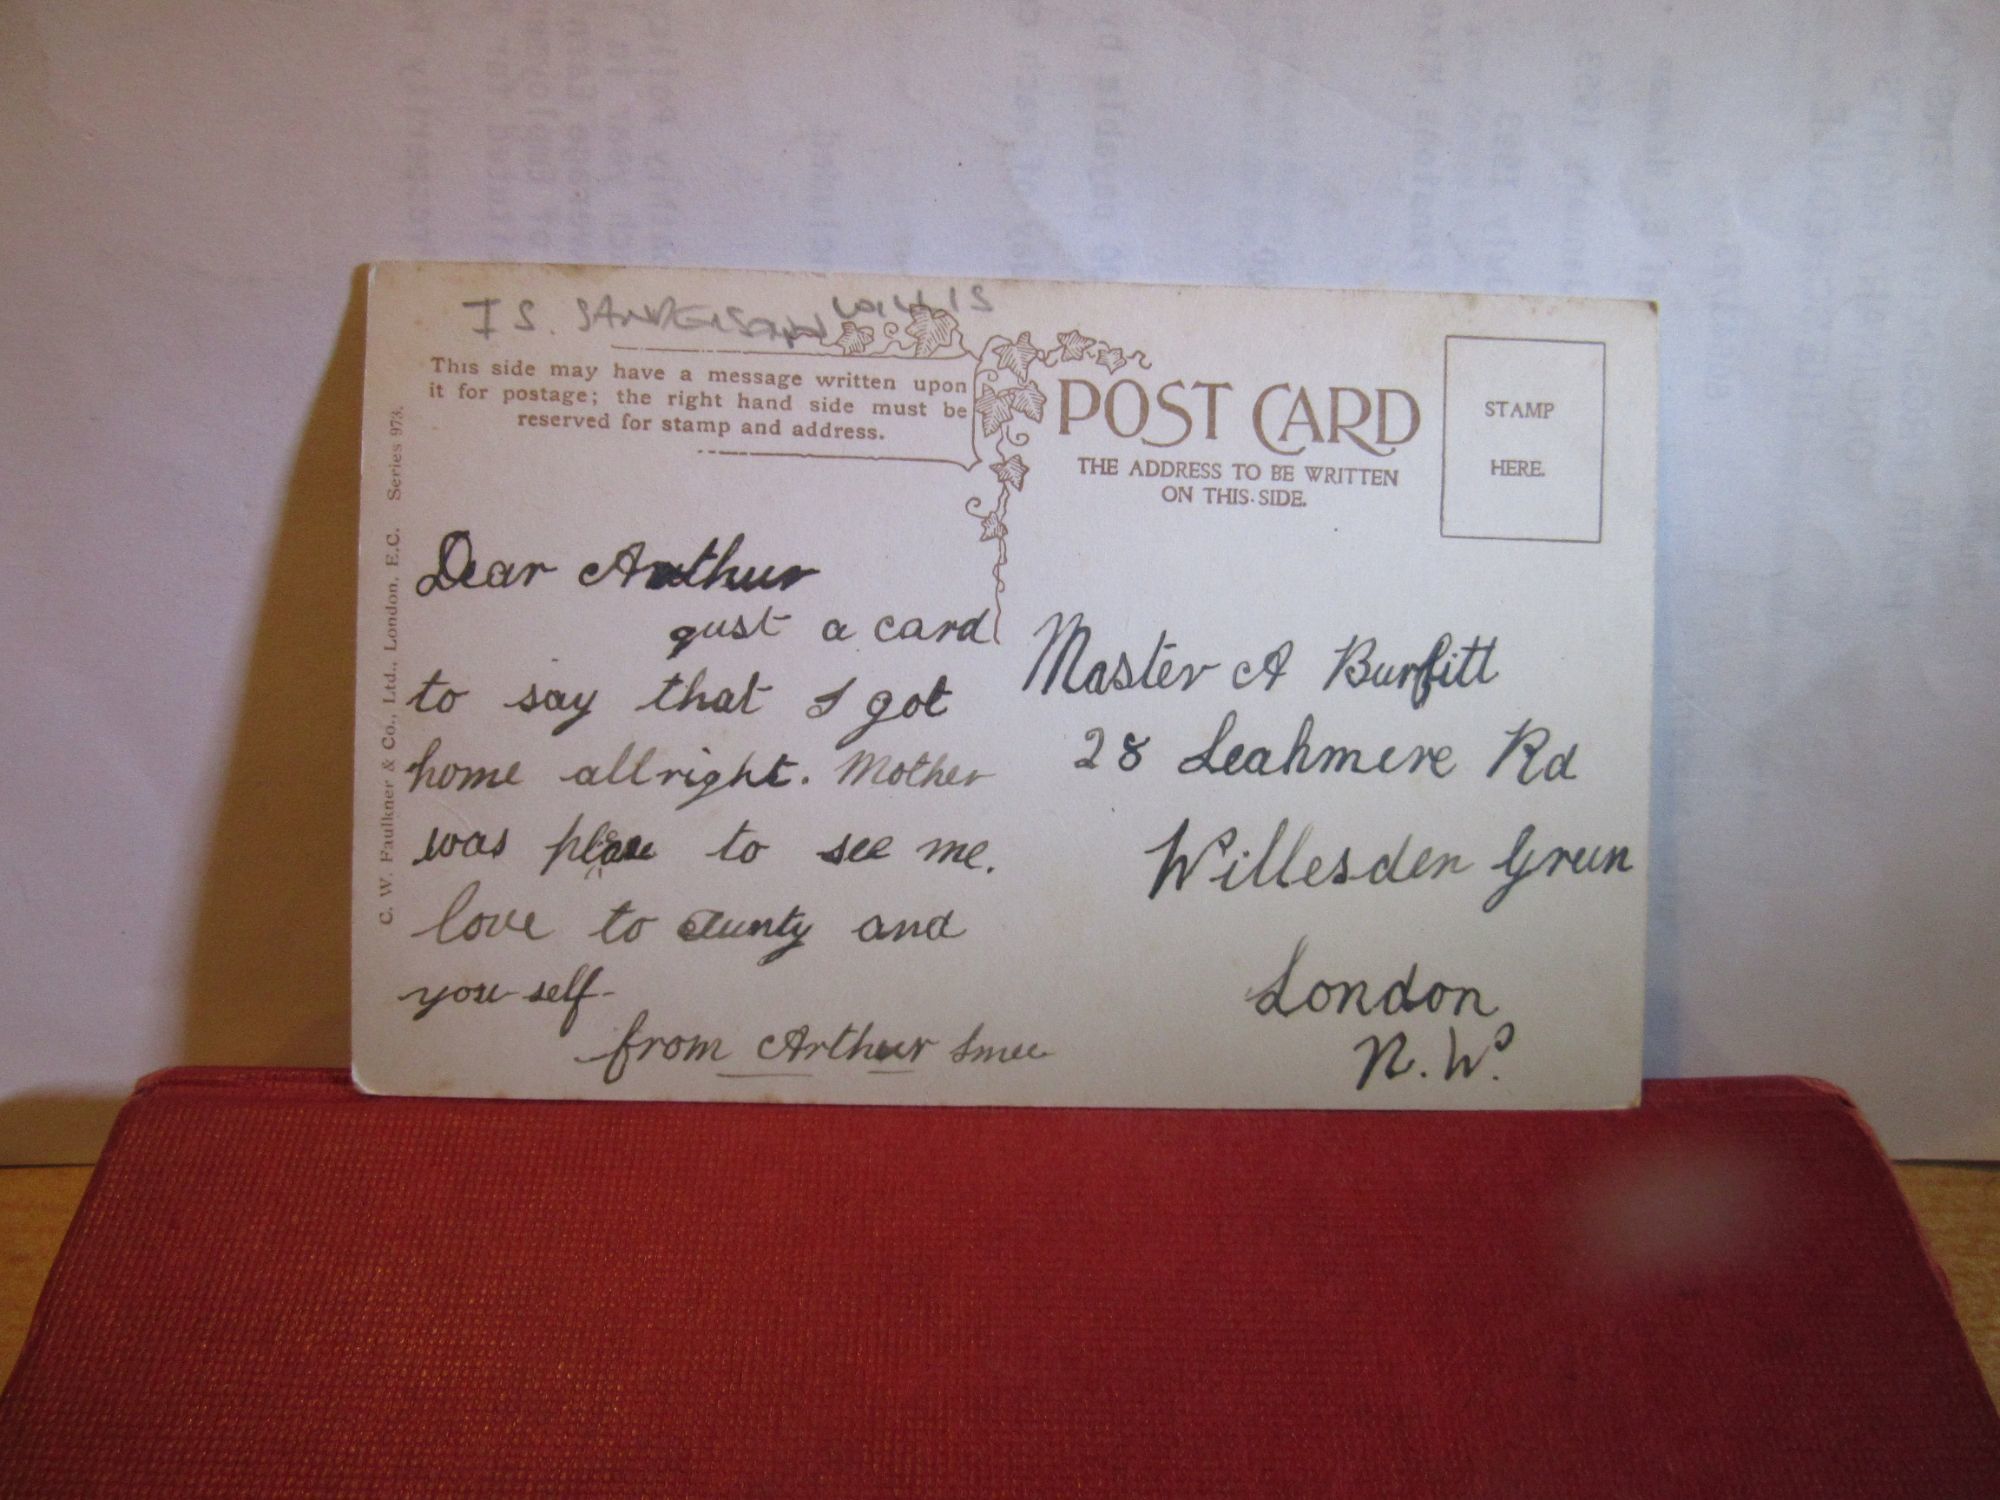 I S. SANDERSON WILLIS
This side may have a message written upon
it for postage; the right hand side must be
reserved for stamp and address.
POST CARD
THE ADDRESS TO BE WRITTEN
ON THIS SIDE.
STAMP
HERE.
C. W. Faulkner & Co., Ltd., London, E.C. Series 973.
Dear Arthur
just a card
to say that I got
home allright. Mother
was to see me.
love to Aunty and
you self
from Arthur Smee
Master A Burfitt
28 Leahmere Rd
Willesden Green
London
N. W.